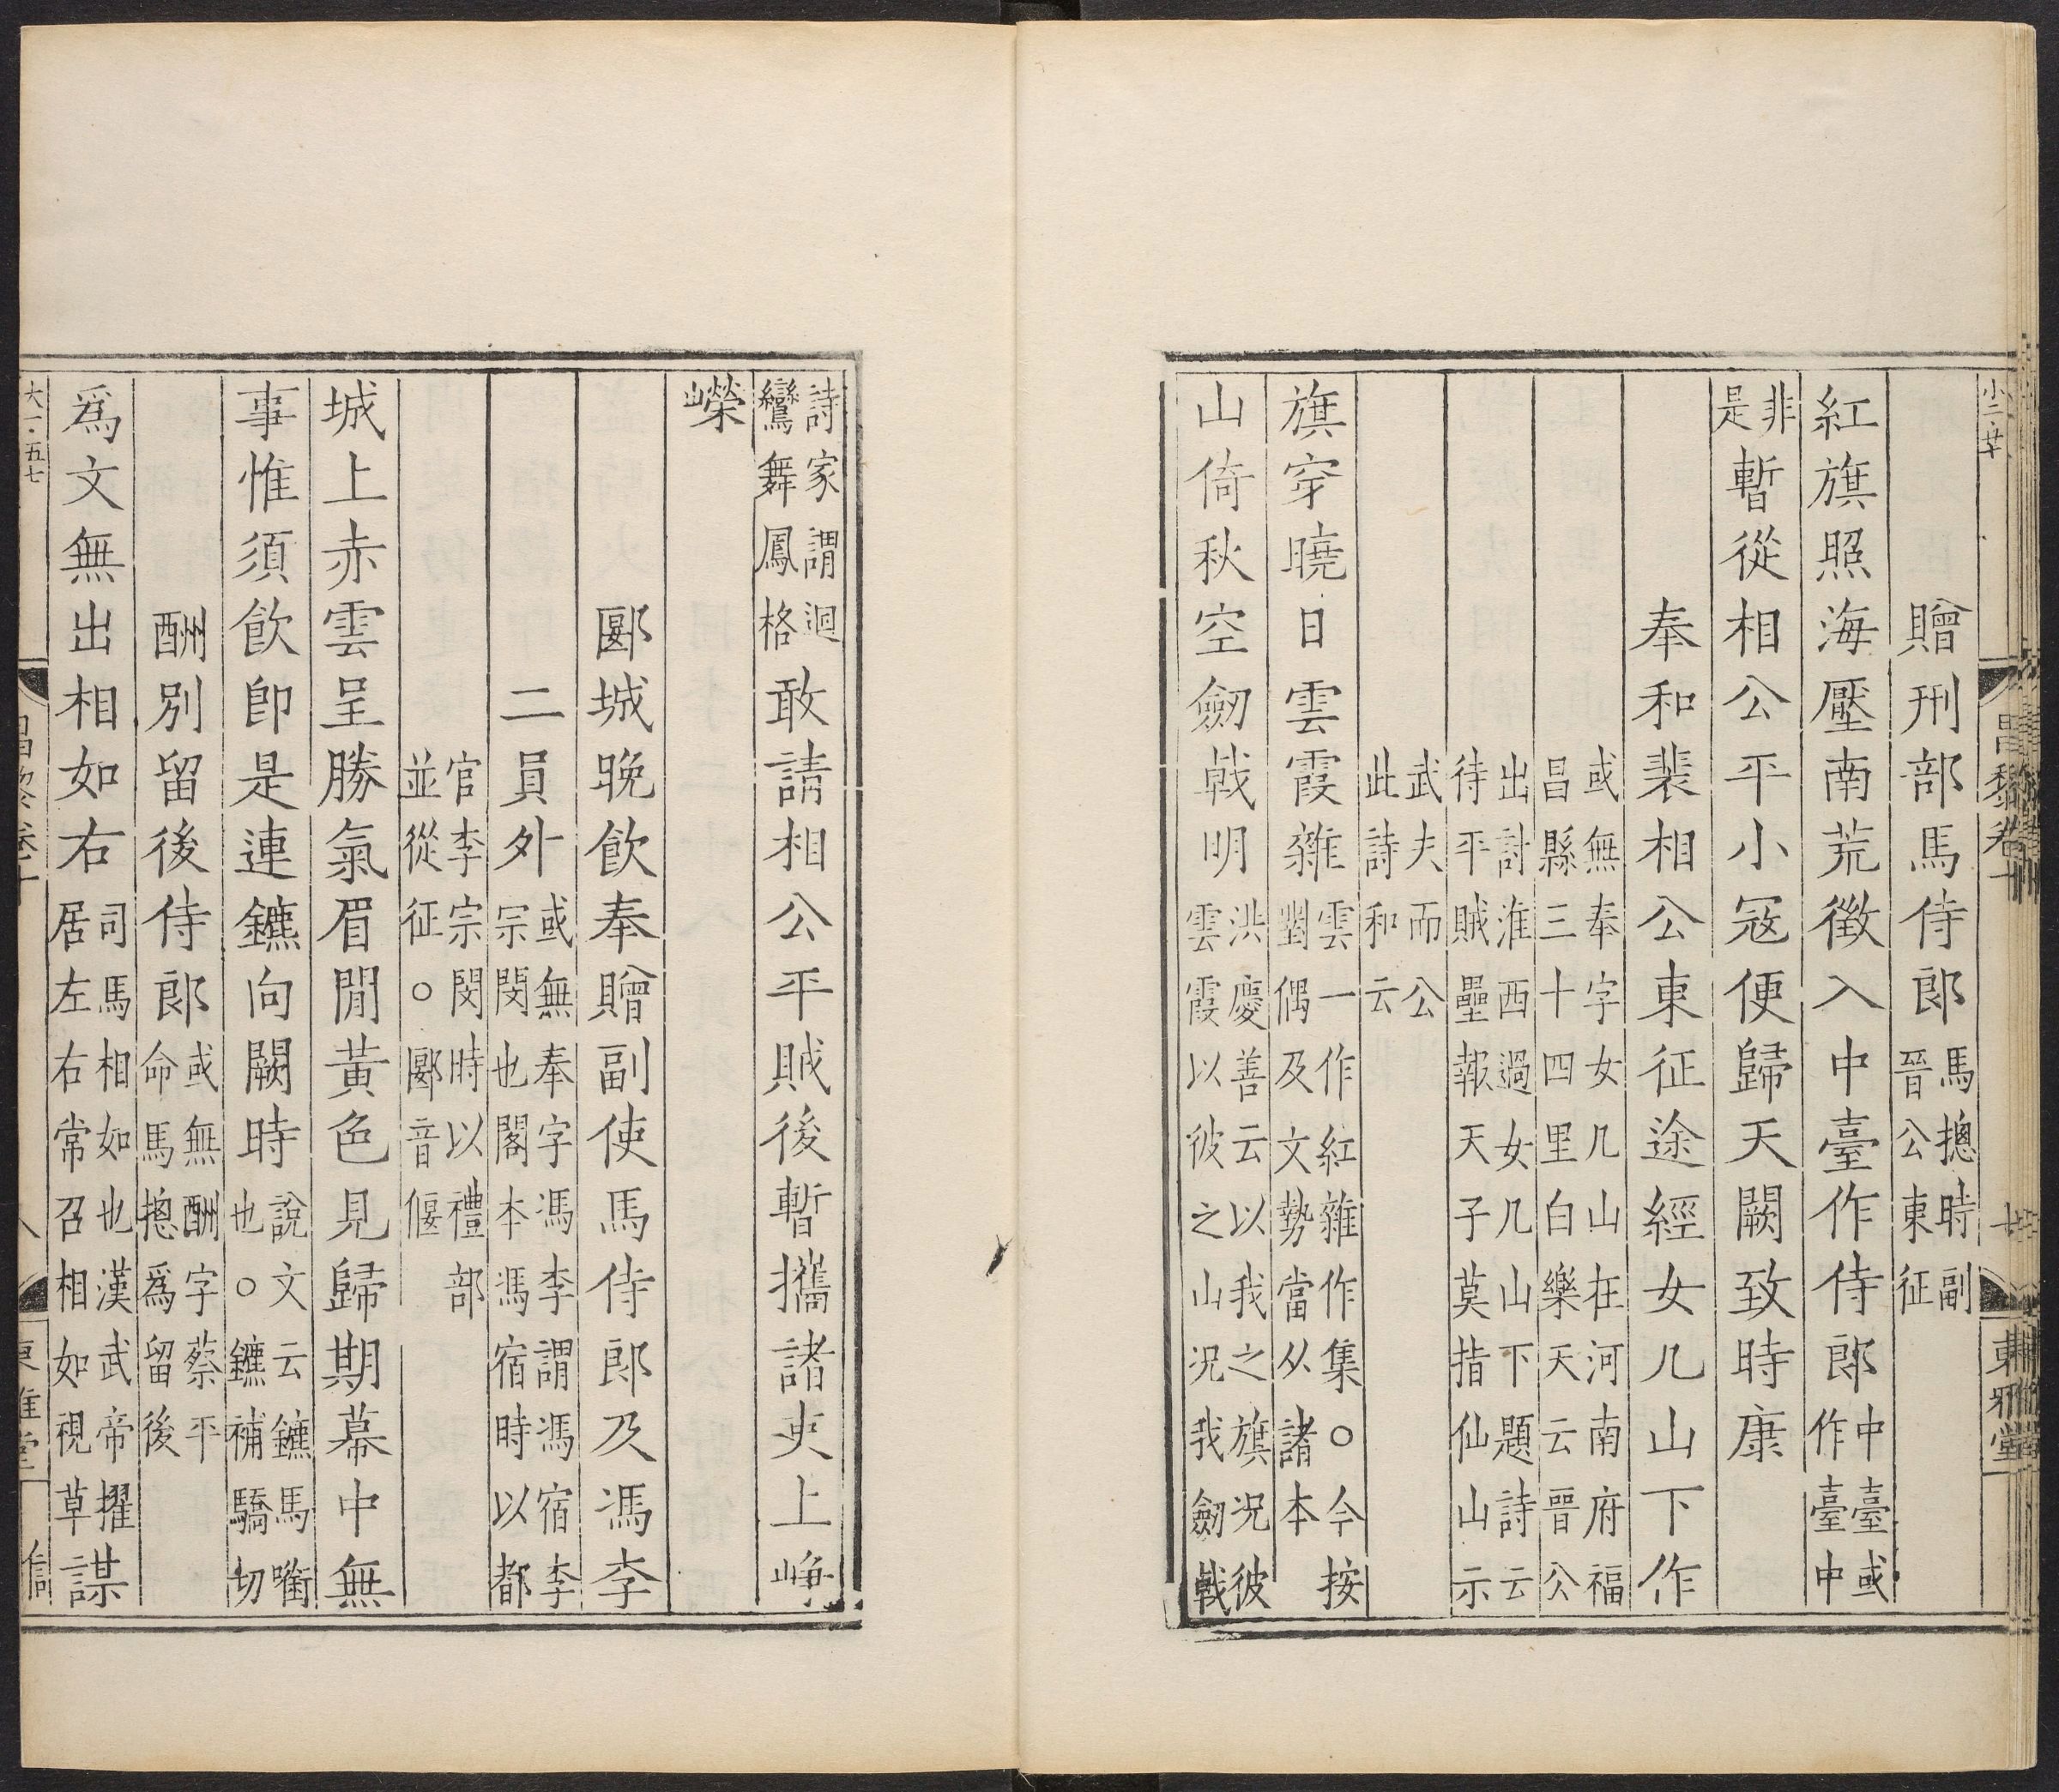 昌黎卷十
東雅堂
贈刑部馬侍郎馬摠時副晉公東征
紅旗照海壓南荒徵入中臺作侍郎中臺或作臺中
非是暫從相公平小寇便歸天闕致時康
奉和裴相公東征途經女几山下作
或無奉字女几山在河南府福昌縣三十四里白樂天云晉公
出討淮西過女几山下題詩云待平賊壘報天子莫指仙山示
武夫而公此詩和云
旗穿曉日雲霞雜雲一作紅雜作集○今按對偶及文勢當从諸本
山倚秋空劒戟明洪慶善云以我之旗况彼雲霞以彼之山况我劒戟
詩家謂迴鸞舞鳳格敢請相公平賊後暫攜諸吏上崢
嶸
郾城晚飲奉贈副使馬侍郎及馮李
二員外或無奉字馮李謂馮宿李宗閔也閣本馮宿時以都
官李宗閔時以禮部並從征○郾音偃
城上赤雲呈勝氣眉間黃色見歸期幕中無
事惟須飲即是連鑣向闕時說文云鑣馬銜也○鑣補驕切
酬別留後侍郎或無酬字蔡平命馬摠爲留後
爲文無出相如右司馬相如也漢武帝擢居左右常召相如視草謀
大一·五七
昌黎卷十
八
東雅堂